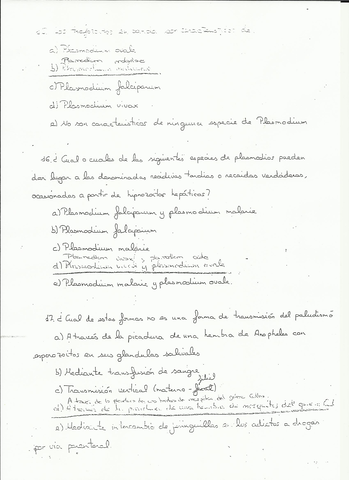 a) Plasmodium ovale
Plasmodium malariae
b) Plasmodium malariae
c) Plasmodium falciparum
d) Plasmodium vivax
e) No son características de ninguna especie de Plasmodium
36. ¿Cual o cuales de las siguientes especies de plasmodios pueden
dar lugar a las denominadas recidivas tardías o recaidas verdaderas,
ocasionadas a partir de hipnozoitos hepáticos?
a) Plasmodium falciparum y plasmodium malarie
b) Plasmodium falciparum
c) Plasmodium malarie
Plasmodium vivax y plasmodium ovale
d) Plasmodium vivax y plasmodium ovale
e) Plasmodium malarie y plasmodium ovale.
37. ¿Cual de estas formas no es una forma de transmisión del paludismo
a) A través de la picadura de una hembra de Anopheles con
esporozoitos en sus glandulas salivales
b) Mediante transfusión de sangre
c) Transmisión vertical (materno-fetal)
A través de la picadura de una hembra de mosquitos del género Culex
d) A través de la picadura de una hembra de mosquitos del género
e) Mediante intercambio de jeringuillas si los adictos a drogas
por vía parenteral